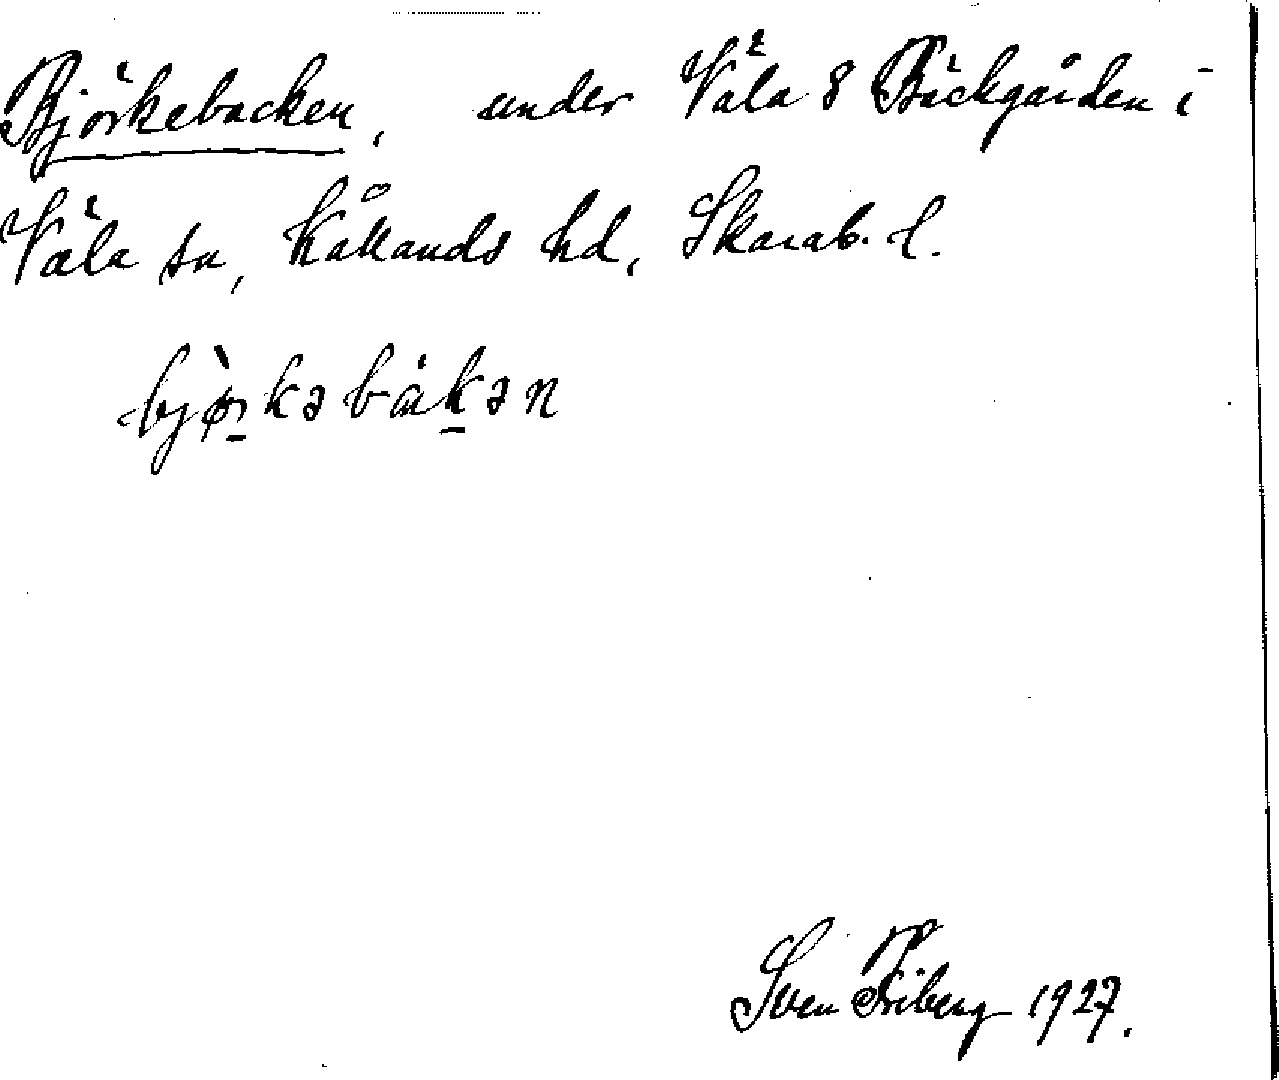 Björkebacken, under Väla 8 Bäckgården i
Väla sn, Kållands hd, Skarab. l.
bjø̀rkəbákən
Sven Friberg 1927.